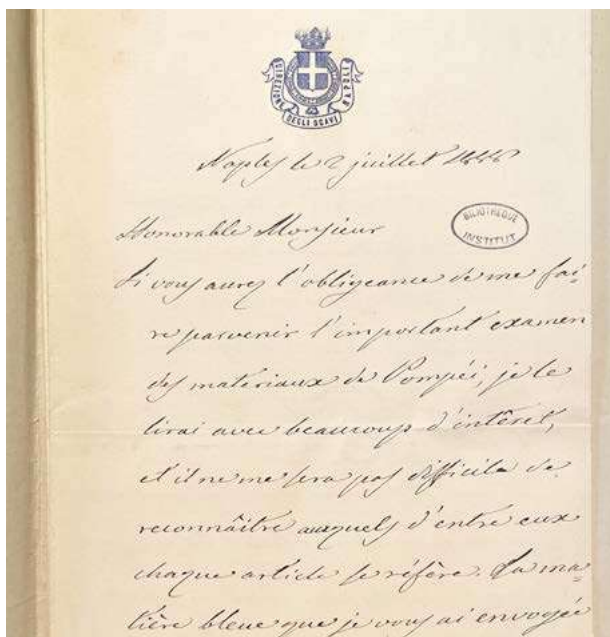 DIREZIONE DEGLI SCAVI NAPOLI
Naples le 2 juillet
Honorable Monsieur
BIBLIOTHEQUE
INSTITUT
Si vous aurez l'obligeance de me fai-
re parvenir l'important examen
des matériaux de Pompéi, je le
lirai avec beaucoup d'intêret,
et il ne me sera pas difficile de
reconnâitre auxquels d'entre eux
chaque article se réfère. La ma-
tière bleue que je vous ai envoyée